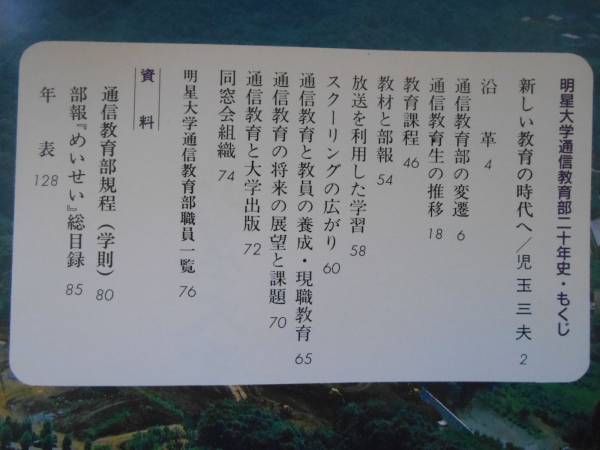 明星大学通信教育部二十年史・もくじ
新しい教育の時代へ／児玉三夫 2
沿革 4
通信教育部の変遷 6
通信教育生の推移 18
教育課程 46
教材と部報 54
放送を利用した学習 58
スクーリングの広がり 60
通信教育と教員の養成・現職教育 65
通信教育の将来の展望と課題 70
通信教育と大学出版 72
同窓会組織 74
明星大学通信教育部職員一覧 76
資料
通信教育部規程（学則） 80
部報『めいせい』総目録 85
年表 128